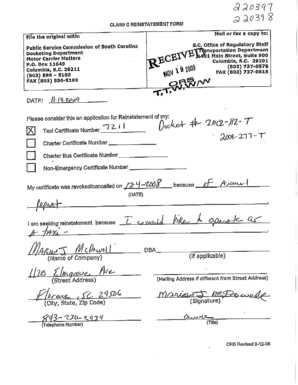 220397
220398
CLASS C REINSTATEMENT FORM
File the original with:
Public Service Commission of South Carolina
Docketing Department
Motor Carrier Matters
P.O. Box 11649
Columbia, S.C. 29211
(803) 896 - 5100
FAX (803) 896-5199
Mail or fax a copy to:
S.C. Office of Regulatory Staff
Transportation Department
1401 Main Street, Suite 900
Columbia, S.C. 29201
(803) 737-0578
FAX (803) 737-0815
RECEIVED
NOV 19 2009
ORS
T.T.W/W
DATE: 11-19-2009
Please consider this an application for Reinstatement of my:
X Taxi Certificate Number 7211
Docket # 2002-112-T
2009-277-T
Charter Certificate Number
Charter Bus Certificate Number
Non-Emergency Certificate Number
My certificate was revoked/cancelled on 12-4-2008 because of Annual
(DATE)
Report
I am seeking reinstatement because I would like to operate as
A taxi -
Marius J McDowell
DBA
(Name of Company)
(If applicable)
1170 Elmgrove Ave
(Street Address)
(Mailing Address if different from Street Address)
Florence, SC 29506
Marius J McDowell
(City, State, Zip Code)
(Signature)
843-230-2954
owner
(Telephone Number)
(Title)
ORS Revised 9-12-08